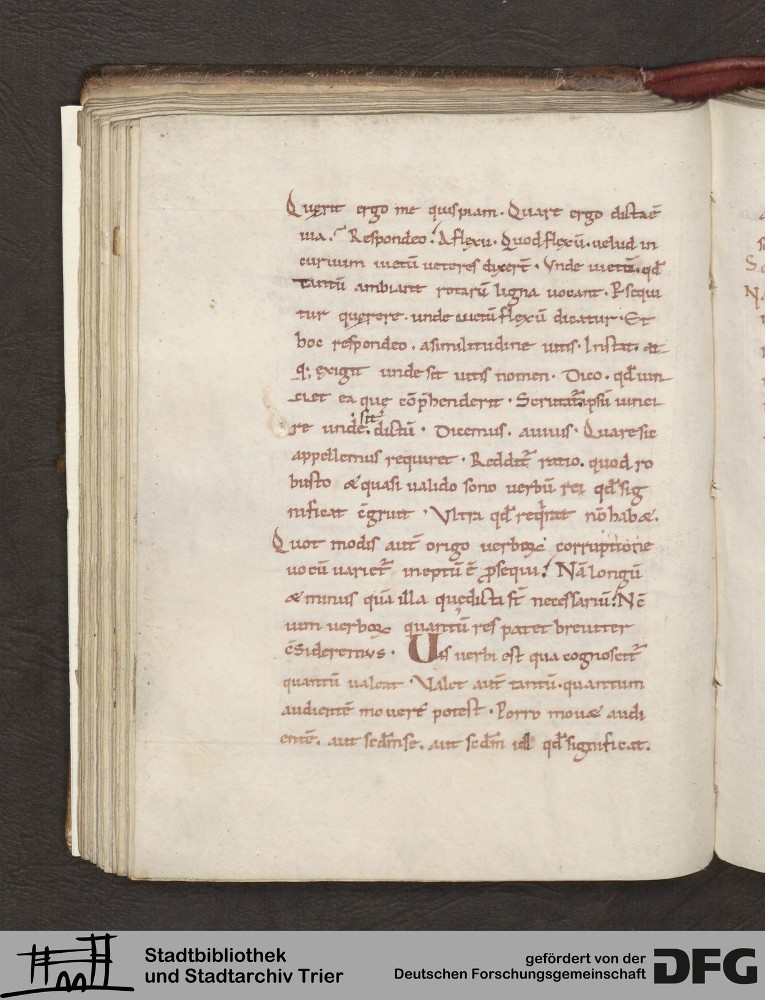 Querit ergo me quispiam. Quare ergo dicta ē
uia. Respondeo. A flexu. Quod flexū. uelud in
curuum uietū ueteres dixerт̄. Vnde uietū. qđ
tantū ambiant rotarū ligna uocant. P sequi
tur quęrere. unde uietū flexū dicatur. Et
hoc respondeo. a similitudine uitis. Instat. at
q; exigit unde sit uitis nomen. Dico. qđ uin
ciet ea quę cōp̄henderit. Scrutat̄ ipsū uinci
re unde sit dictū. Dicemus. a uiuis. Quare sic
appellemus requiret. Reddit̄ ratio. quod ro
busto æ quasi ualido sono uerbū rei qđ sig
nificat c̄gruit. Vltra qđ reqirat nō habæ.
Quot modis aut̄ origo uerboꝝ corruptione
uocū uariet̄ ineptū ē ꝓsequi. Nā longū
æ minus quā illa quę dicta st̄ necessariū. Nc̄
uim uerboꝝ quantū res patet breuiter
c̄sideremus. Uis uerbi est qua cognoscit̄
quantū ualeat. Valet aut̄ tantū. quantum
audientē mouere potest. Porro mouæ audi
entē. aut scđm se. aut scđm id qđ significat.
Stadtbibliothek
und Stadtarchiv Trier
gefördert von der
Deutschen Forschungsgemeinschaft
DFG